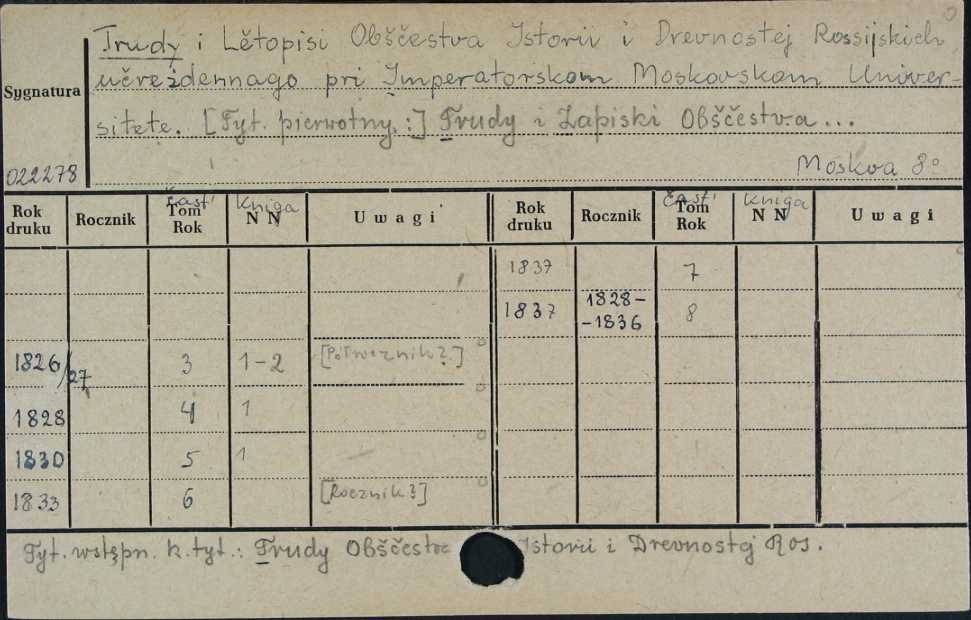 Trudy i Lětopisi Obščestva Istorii i Drevnostej Rossijskich,
učreždennago pri Imperatorskom Moskovskom Univer-
Sygnatura
sitete. [Tyt. pierwotny:] Trudy i Zapiski Obščestva...
022278
Moskva 8°
Rok druku Rocznik Čast' Tom Rok Kniga N N Uwagi Rok druku Rocznik Čast' Tom Rok Kniga N N Uwagi
1837 7
1837 1828-
-1836 8
1826/27 3 1-2 [Półrocznik?]
1828 4 1
1830 5 1
1833 6 [Rocznik?]
Tyt. wstępn. k. tyt.: Trudy Obščestv Istorii i Drevnostej Ros.